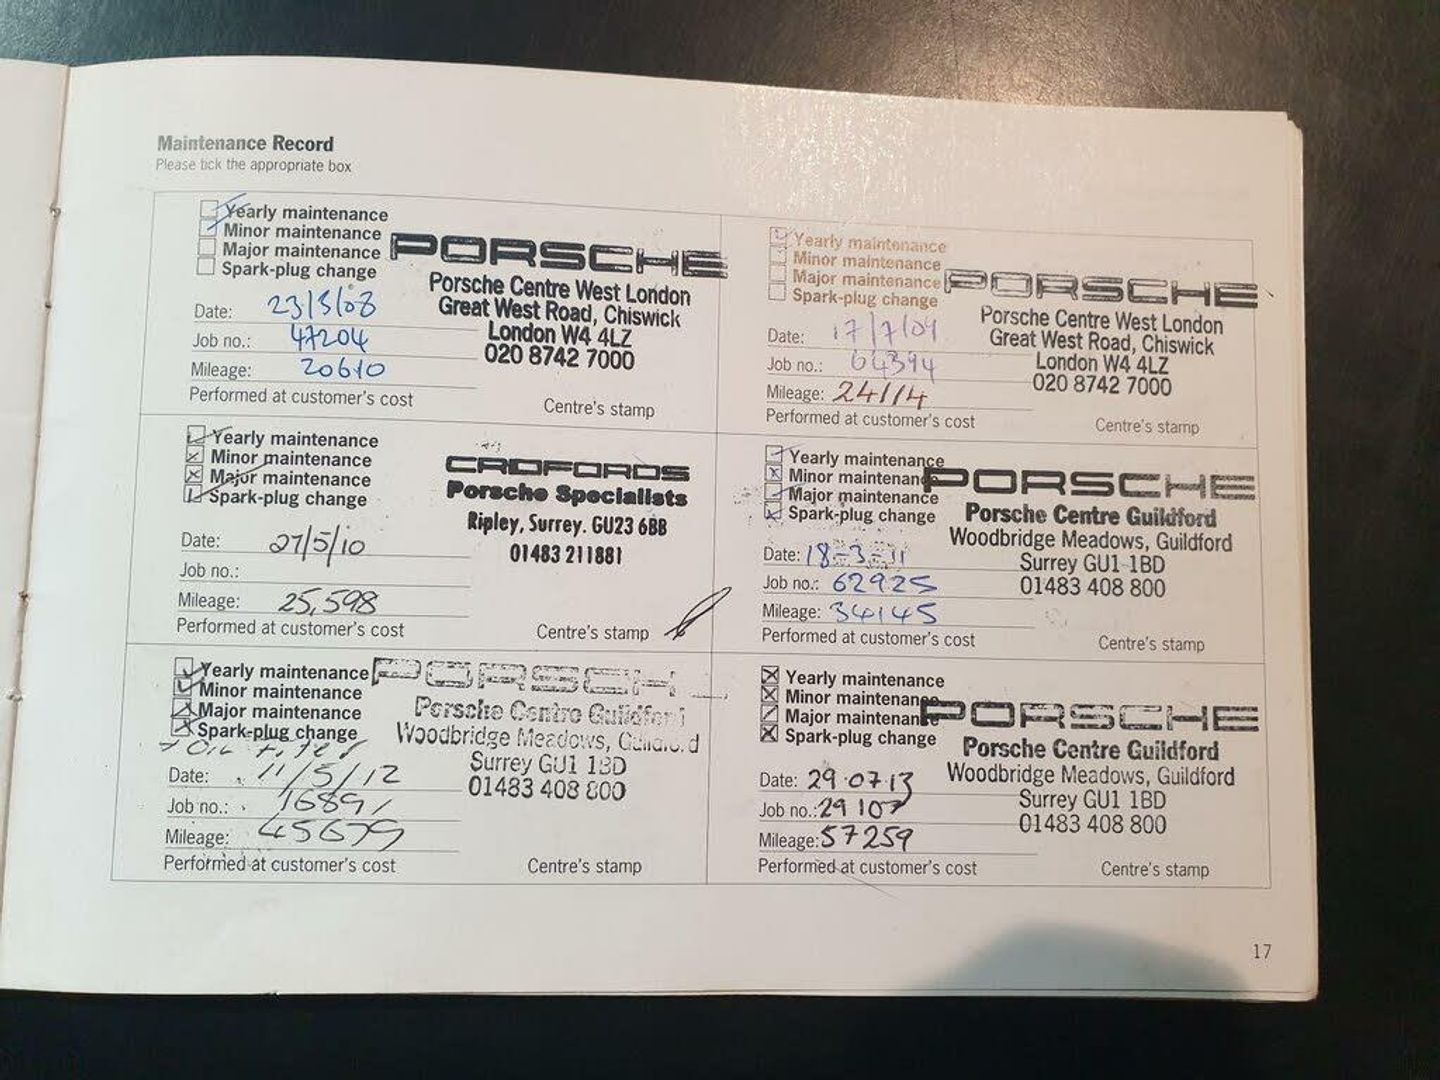 Maintenance Record
Please tick the appropriate box
Yearly maintenance
Minor maintenance
Major maintenance
Spark-plug change
PORSCHE
Porsche Centre West London
Great West Road, Chiswick
London W4 4LZ
020 8742 7000
Date: 23/5/08
Job no.: 47204
Mileage: 20610
Performed at customer's cost
Centre's stamp
Yearly maintenance
Minor maintenance
Major maintenance
Spark-plug change
PORSCHE
Porsche Centre West London
Great West Road, Chiswick
London W4 4LZ
020 8742 7000
Date: 17/7/09
Job no.: 64394
Mileage: 24114
Performed at customer's cost
Centre's stamp
Yearly maintenance
Minor maintenance
Major maintenance
Spark-plug change
CROFORDS
Porsche Specialists
Ripley, Surrey. GU23 6BB
01483 211881
Date: 27/5/10
Job no.:
Mileage: 25,598
Performed at customer's cost
Centre's stamp
Yearly maintenance
Minor maintenance
Major maintenance
Spark-plug change
PORSCHE
Porsche Centre Guildford
Woodbridge Meadows, Guildford
Surrey GU1 1BD
01483 408 800
Date: 18-3-11
Job no.: 62925
Mileage: 34145
Performed at customer's cost
Centre's stamp
Yearly maintenance
Minor maintenance
Major maintenance
Spark-plug change
+ Oil filter
PORSCH
Porsche Centre Guildford
Woodbridge Meadows, Guildford
Surrey GU1 1BD
01483 408 800
Date: 11/5/12
Job no.: 16891
Mileage: 45679
Performed at customer's cost
Centre's stamp
Yearly maintenance
Minor maintenance
Major maintenance
Spark-plug change
PORSCHE
Porsche Centre Guildford
Woodbridge Meadows, Guildford
Surrey GU1 1BD
01483 408 800
Date: 29.07.13
Job no.: 29107
Mileage: 57259
Performed at customer's cost
Centre's stamp
17